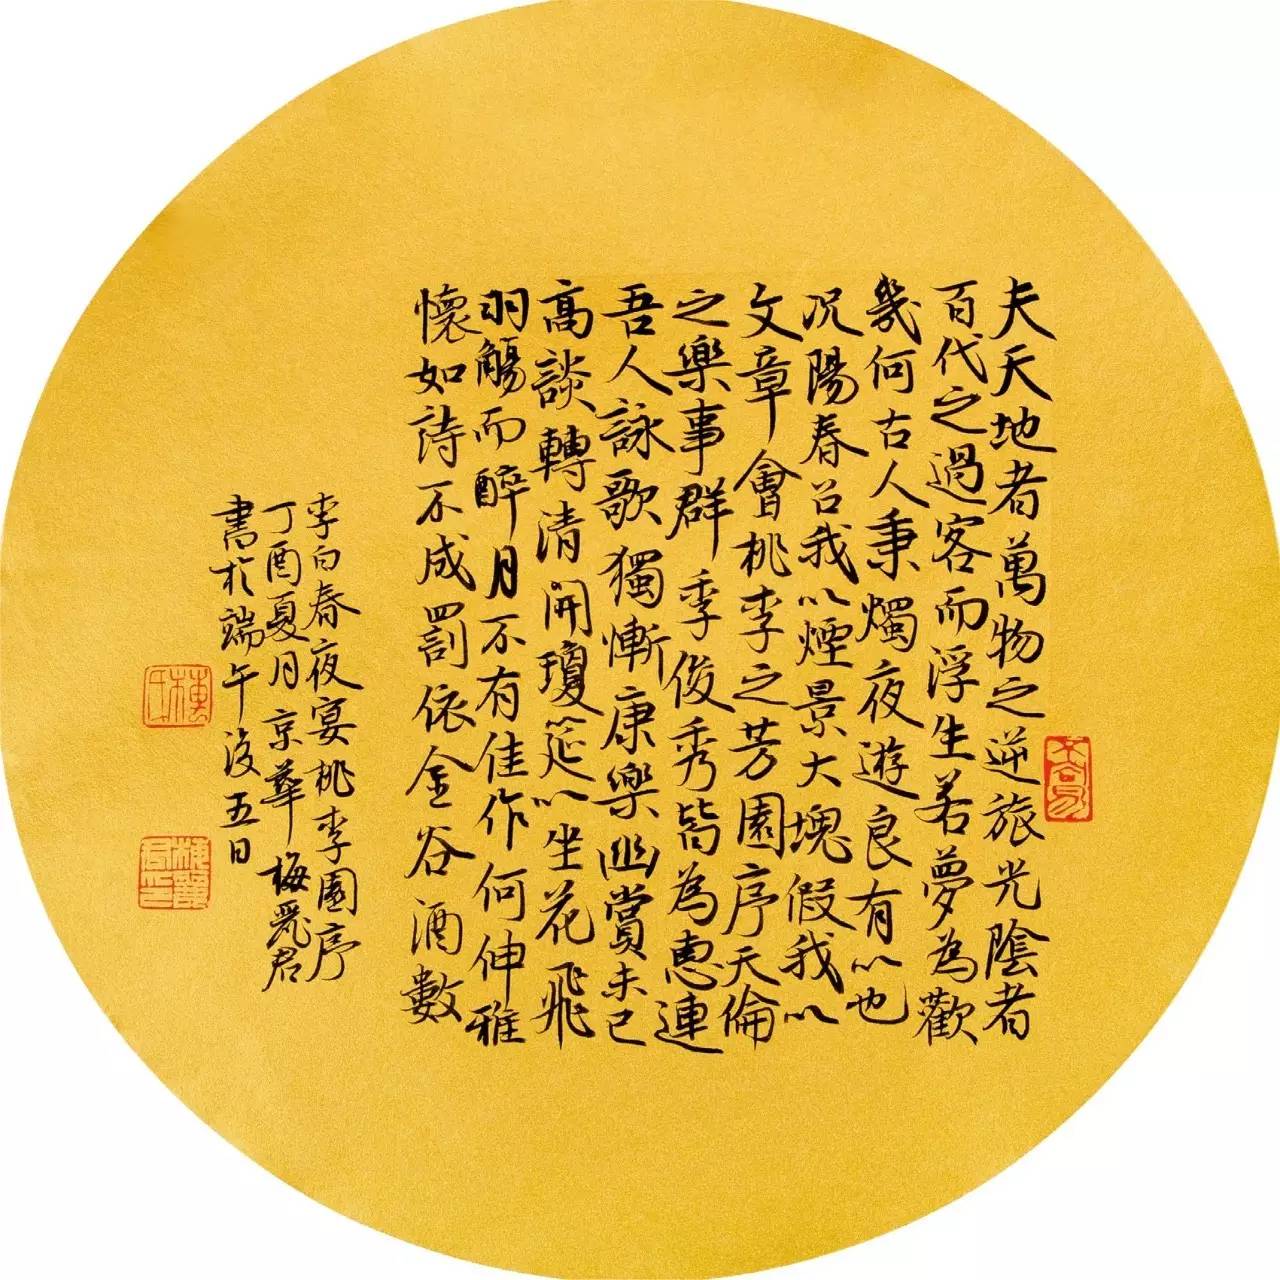 夫天地者萬物之逆旅光陰者
百代之過客而浮生若夢為歡
幾何古人秉燭夜遊良有以也
況陽春召我以煙景大塊假我以
文章會桃李之芳園序天倫
之樂事群季俊秀皆為惠連
吾人詠歌獨慚康樂幽賞未已
高談轉清開瓊筵以坐花飛
羽觴而醉月不有佳作何伸雅
懷如詩不成罰依金谷酒數
李白春夜宴桃李園序
丁酉夏月京華梅麗君
書於端午後五日
梅麗君印